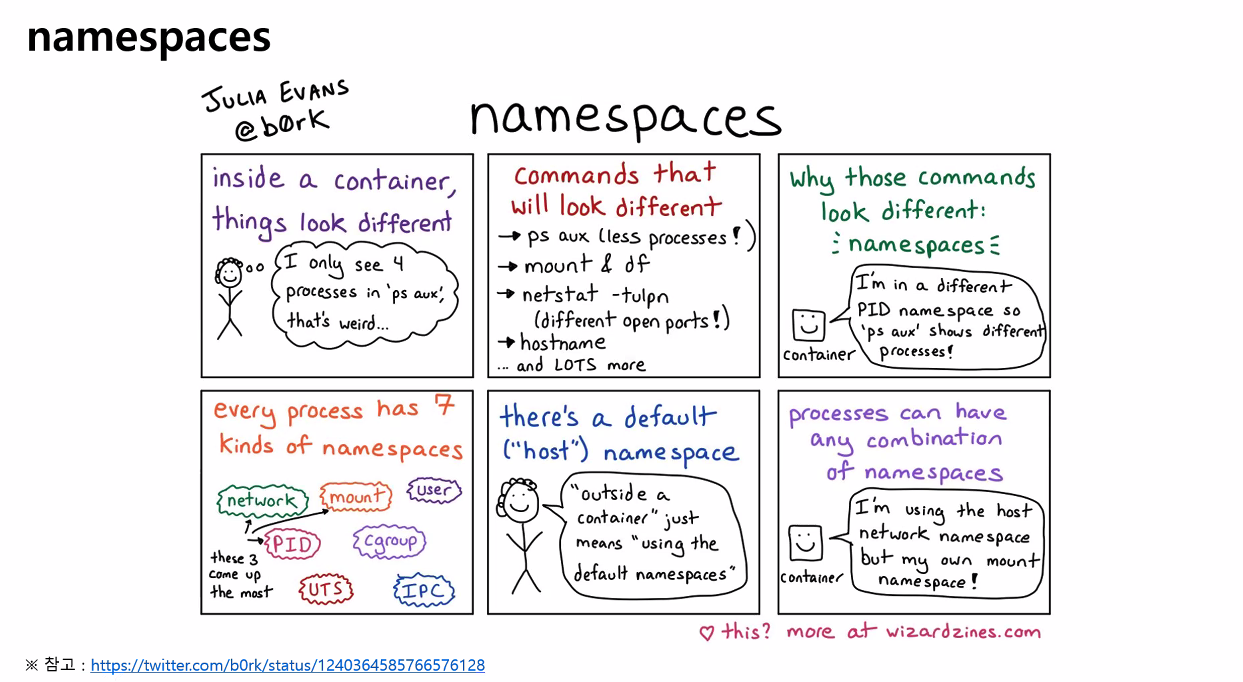 namespaces
JULIA EVANS
@b0rk
namespaces
inside a container,
things look different
I only see 4
processes in 'ps aux',
that's weird...
Commands that
will look different
→ ps aux (less processes!)
→ mount & df
→ netstat -tulpn
(different open ports!)
→ hostname
... and LOTS more
Why those commands
look different:
namespaces
I'm in a different
PID namespace so
'ps aux' shows different
processes!
container
every process has 7
kinds of namespaces
network
mount
user
PID
cgroup
these 3
come up
the most
UTS
IPC
there's a default
("host") namespace
"outside a
container" just
means "using the
default namespaces"
processes can have
any combination
of namespaces
I'm using the host
network namespace
but my own mount
namespace!
container
♡ this? more at wizardzines.com
※ 참고 : https://twitter.com/b0rk/status/1240364585766576128